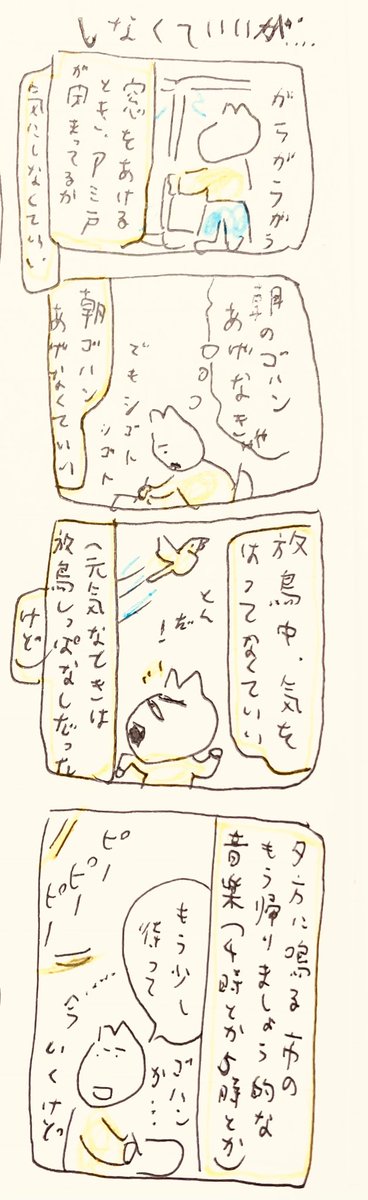 しなくていいが…
がらがらがら
窓をあける
とき、アミ戸
が閉まってるか
気にしなくていい
朝のゴハン
あげなきゃ
でもシゴト
シゴト
朝ゴハン
あげなくていい
放鳥中、気を
はってなくていい
とん
だ!
(元気なときは
放鳥しっぱなしだった
けど
夕方に鳴る市の
もう帰りましょう的な
音楽(4時とか5時とか)
もう少し
待って
ゴハン
か…
ピー
ピー
ピー
今
いくけど